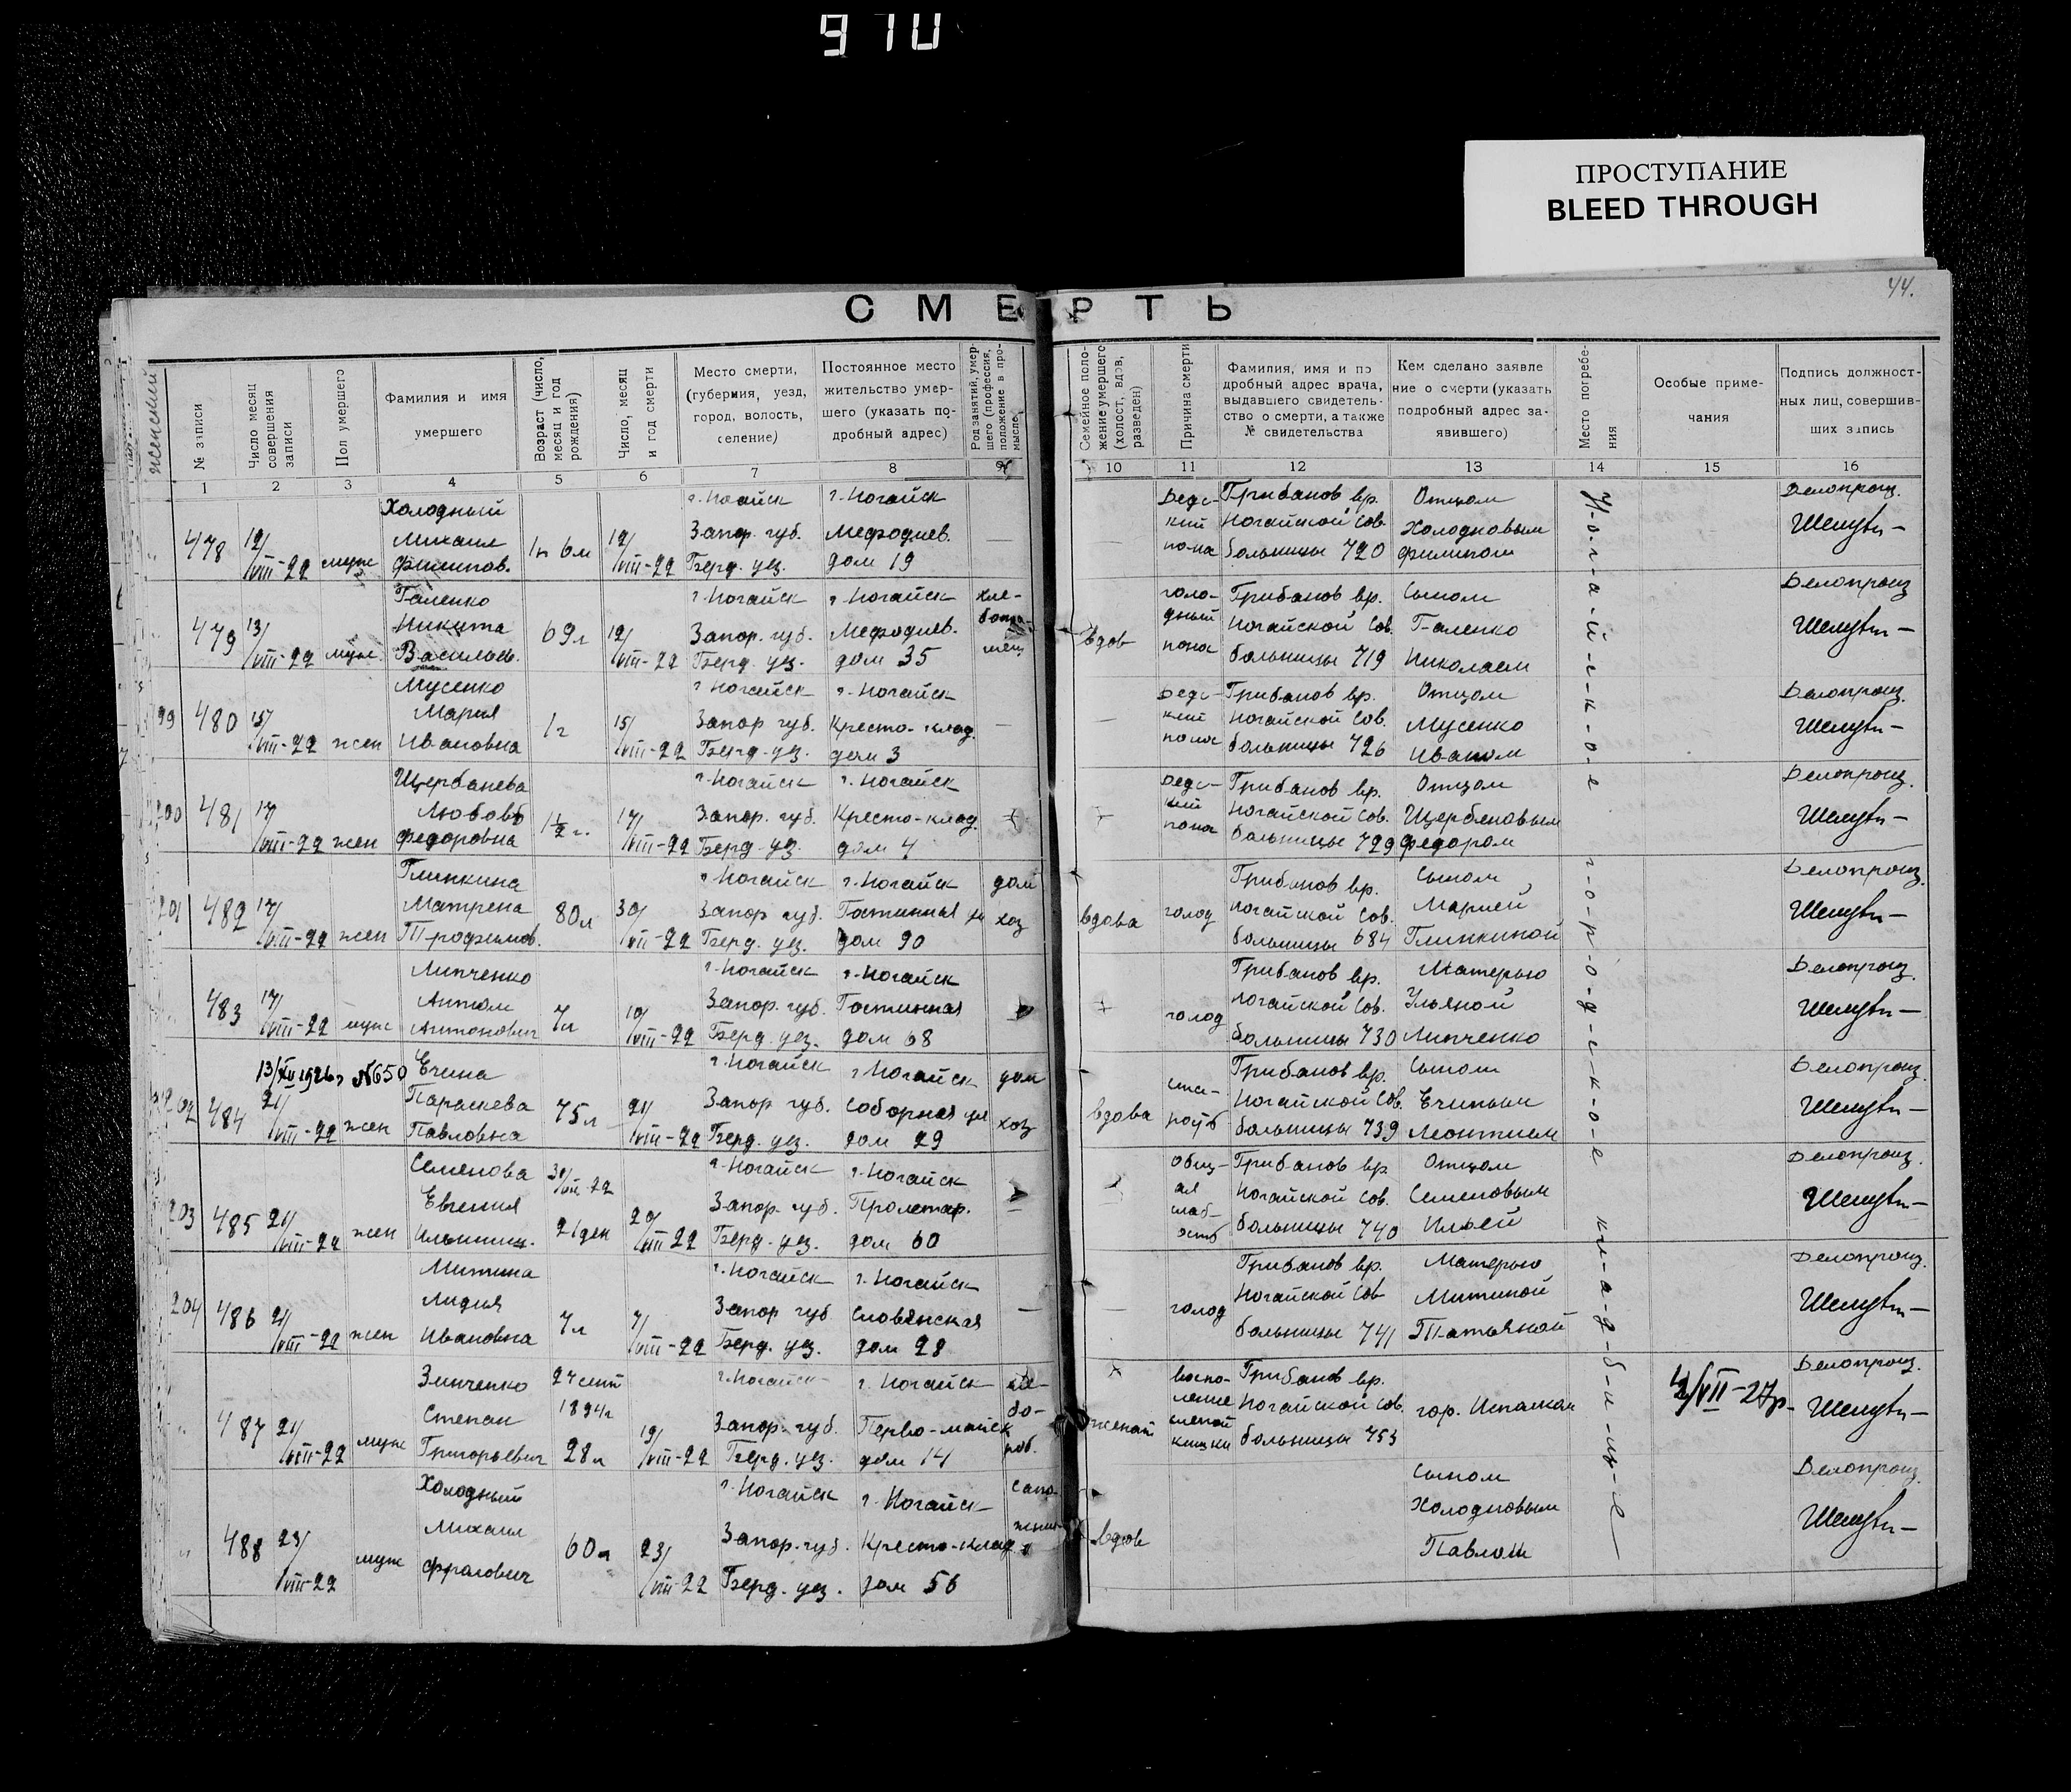 970
ПРОСТУПАНИЕ
BLEED THROUGH
44.
СМЕРТЬ
женский
№ записи
Число месяц совершения записи
Пол умершего
Фамилия и имя умершего
Возраст (число, месяц и год рождения)
Число, месяц и год смерти
Место смерти, (губерния, уезд, город, волость, селение)
Постоянное место жительство умершего (указать подробный адрес)
Род занятий, умершего (профессия, положение в промысле)
Семейное положение умершего, (холост, вдов, разведен)
Причина смерти
Фамилия, имя и подробный адрес врача, выдавшего свидетельство о смерти, а также № свидетельства
Кем сделано заявление о смерти (указать подробный адрес заявившего)
Место погребения
Особые примечания
Подпись должностных лиц, совершивших запись
1 2 3 4 5 6 7 8 9 10 11 12 13 14 15 16
478 12/VIII-22 муж Холодный Михаил Филипов. 1г 6м 12/VIII-22 г. Ногайск Запор. губ. Берд. уез. г. Ногайск Мефодиев. дом 19 — — Грибанов вр. Ногайской сов. больницы 720 Отцом Холодновым Филипом Делопроиз.
479 13/VIII-22 муж. Галенко Никита Васильев. 69л 12/VIII-22 г. Ногайск Запор. губ. Берд. уез. г. Ногайск Мефодиев. дом 35 вдов голодный понос Грибанов вр. Ногайской сов. больницы 719 Сыном Галенко Николаем Делопроиз
99 480 15/VIII-22 жен Мусенко Мария Ивановна 1г 15/VIII-22 г. Ногайск Запор губ. Берд. уез. г. Ногайск Кресто-клад. дом 3 — — Грибанов вр. Ногайской сов. больницы 726 Отцом Мусенко Иваном Делопроиз
200 481 17/VIII-22 жен Щербанева Любовь Федоровна 1½ г. 17/VIII-22 г. Ногайск Запор. губ. Берд. уз. г. Ногайск Кресто-клад. дом 4 Грибанов вр. Ногайской сов. больницы 729 Отцом Щербановым Федором Делопроиз.
201 482 17/VIII-22 жен Глинкина Матрена Трофимов. 80л 30/VII-22 г. Ногайск Запор губ. Берд. уез. г. Ногайск Гостинная ул дом 90 дом хоз вдова голод Грибанов вр. Ногайской сов. больницы 684 Сыном Марией Глинкиной Делопроиз.
483 17/VIII-22 муж Липченко Антон Антонович 7л 10/VIII-22 г. Ногайск Запор. губ. Берд. уез. г. Ногайск Гостинная дом 68 голод Грибанов вр. Ногайской сов. больницы 730 Матерью Ульяной Липченко Делопроиз.
13/XII 1926г №650
202 484 21/VIII-22 жен Ечина Параскева Павловна 75л 21/VIII-22 г. Ногайск Запор губ. Берд. уез. г. Ногайск Соборная ул дом 29 дом хоз вдова Грибанов вр. Ногайской сов. больницы 739 Сыном Ечиным Леонтием Делопроиз.
203 485 21/VIII-22 жен Семенова Евгения Ильинич. 31/VII-22 21 ден 20/VIII-22 г. Ногайск Запор. губ. Берд. уез. г. Ногайск Пролетар. дом 60 — Общая слабость Грибанов вр Ногайской сов. больницы 740 Отцом Семеновым Ильей Делопроиз.
204 486 21/VIII-22 жен Митина Лидия Ивановна 7л 7/VIII-22 г. Ногайск Запор губ Берд. уез. г. Ногайск Словянская дом 28 — — голод Грибанов вр. Ногайской сов больницы 741 Матерью Митиной Татьяной Делопроиз.
487 21/VIII-22 муж Зинченко Степан Григорьевич 24 сент 1894г 28л 19/VIII-22 г. Ногайск Запор. губ. Берд. уез. г. Ногайск Перво-майск дом 14 женат воспаление слепой кишки Грибанов вр. Ногайской сов. больницы 753 4/VII-27г. Делопроиз.
488 23/VIII-22 муж Холодный Михаил 60л 23/VIII-22 г. Ногайск Запор. губ. Берд. уез. г. Ногайск Кресто-клад дом 56 вдов Сыном Холодновым Павлом Делопроиз.
Н-о-г-а-й-с-к-о-е г-о-р-о-д-с-к-о-е к-л-а-д-б-и-щ-е